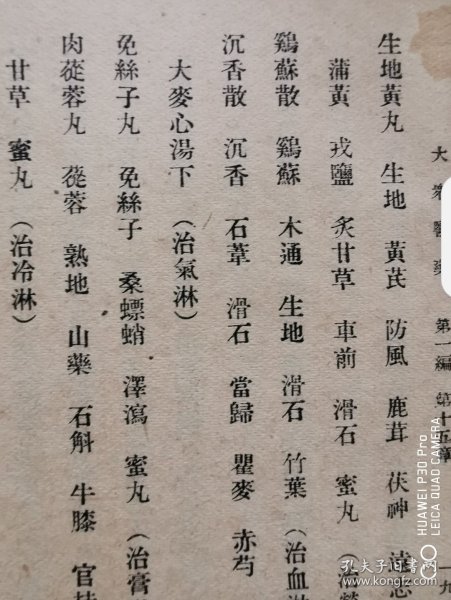 大眾醫藥 第一編 第十五章 一九
生地黃丸 生地 黃芪 防風 鹿茸 茯神 遠志
蒲黃 戎鹽 炙甘草 車前 滑石 蜜丸（治勞
鷄蘇散 鷄蘇 木通 生地 滑石 竹葉（治血淋
沉香散 沉香 石葦 滑石 當歸 瞿麥 赤芍
大麥心湯下（治氣淋）
免絲子丸 免絲子 桑螵蛸 澤瀉 蜜丸（治膏
肉蓯蓉丸 蓯蓉 熟地 山藥 石斛 牛膝 官桂
甘草 蜜丸（治冷淋）
HUAWEI P30 Pro
LEICA QUAD CAMERA
孔夫子旧书网
book.kongfz.com